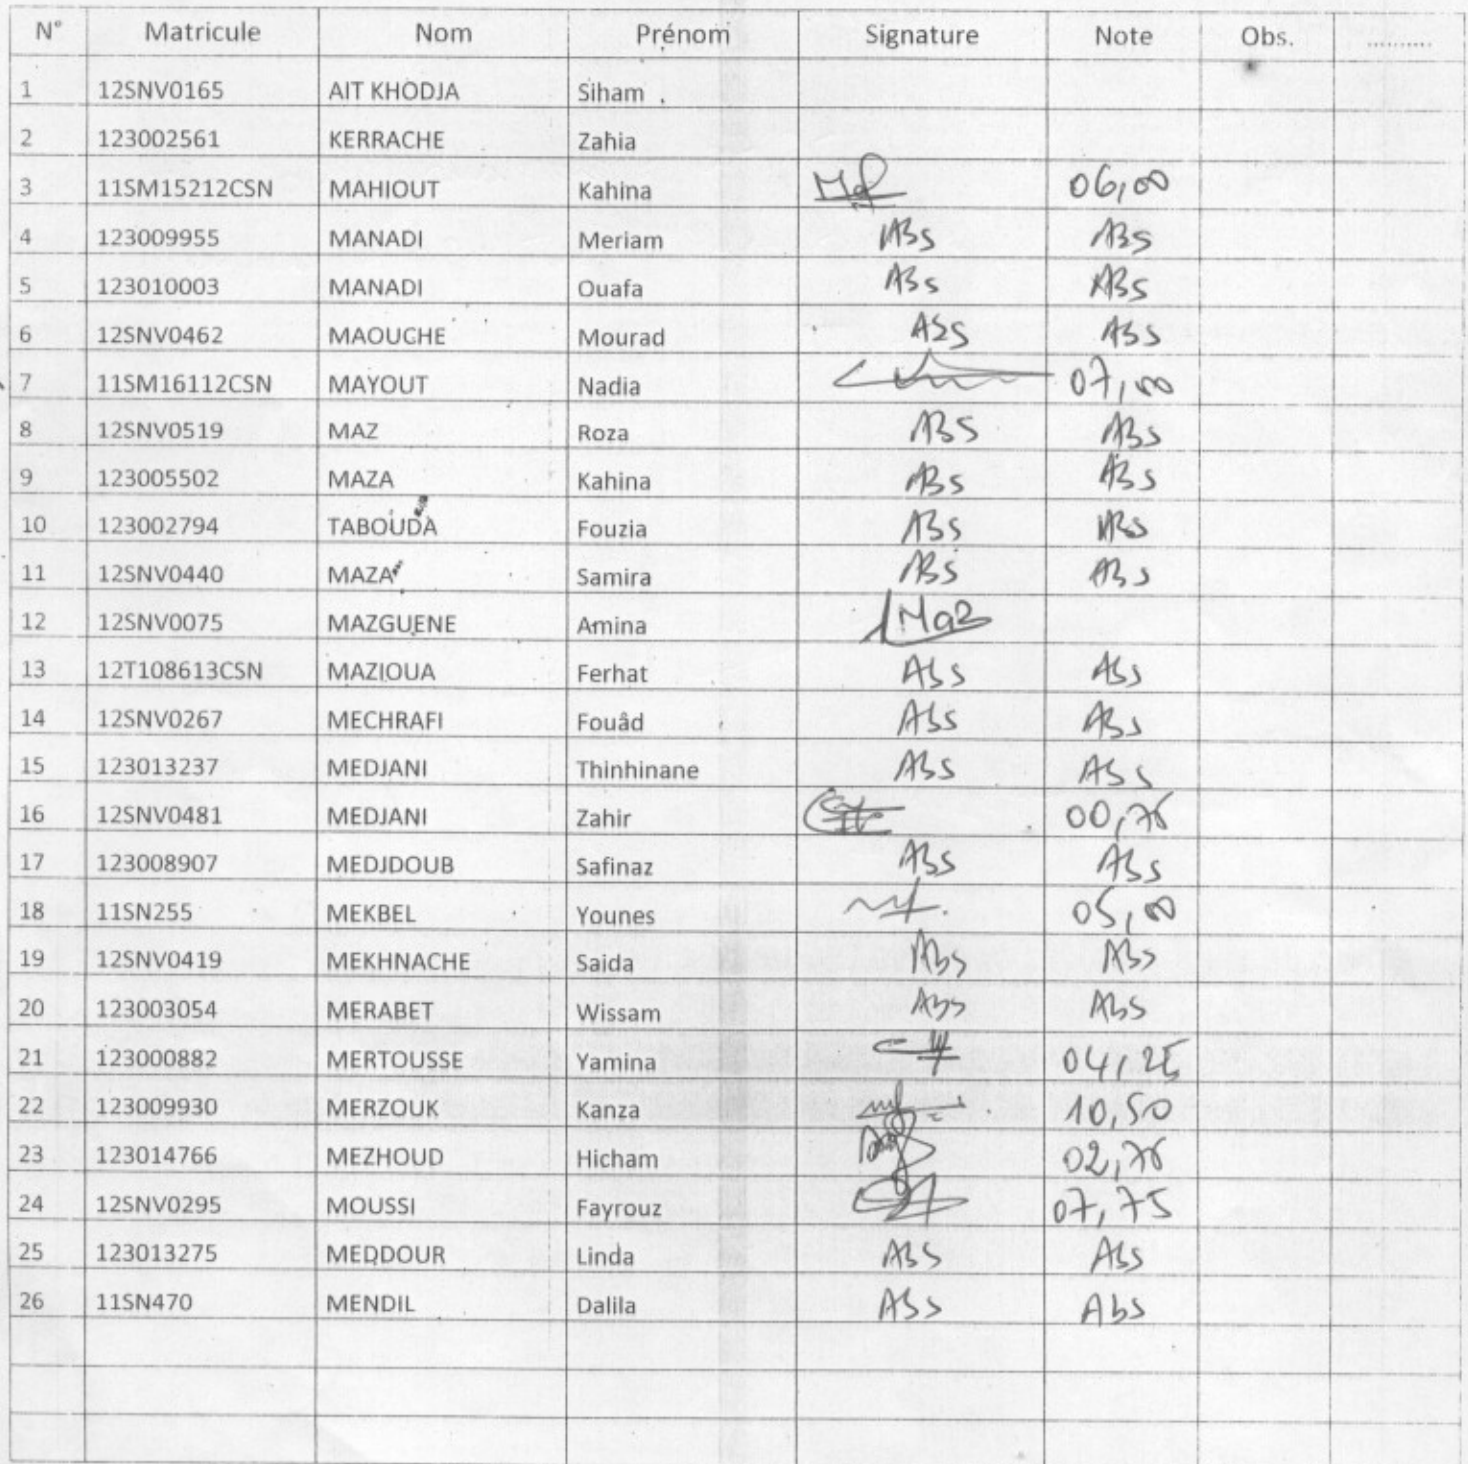 N° Matricule Nom Prénom Signature Note Obs. ..........
1 12SNV0165 AIT KHODJA Siham
2 123002561 KERRACHE Zahia
3 11SM15212CSN MAHIOUT Kahina 06,00
4 123009955 MANADI Meriam ABS ABS
5 123010003 MANADI Ouafa ABS ABS
6 12SNV0462 MAOUCHE Mourad ABS ABS
7 11SM16112CSN MAYOUT Nadia 07,00
8 12SNV0519 MAZ Roza ABS ABS
9 123005502 MAZA Kahina ABS ABS
10 123002794 TABOUDA Fouzia ABS ABS
11 12SNV0440 MAZA Samira ABS ABS
12 12SNV0075 MAZGUENE Amina Maz
13 12T108613CSN MAZIOUA Ferhat Abs Abs
14 12SNV0267 MECHRAFI Fouâd Abs Abs
15 123013237 MEDJANI Thinhinane Abs Abs
16 12SNV0481 MEDJANI Zahir 00,75
17 123008907 MEDJDOUB Safinaz Abs Abs
18 11SN255 MEKBEL Younes 05,00
19 12SNV0419 MEKHNACHE Saida Abs Abs
20 123003054 MERABET Wissam Abs Abs
21 123000882 MERTOUSSE Yamina 04,25
22 123009930 MERZOUK Kanza 10,50
23 123014766 MEZHOUD Hicham 02,75
24 12SNV0295 MOUSSI Fayrouz 07,75
25 123013275 MEDDOUR Linda Abs Abs
26 11SN470 MENDIL Dalila Abs Abs